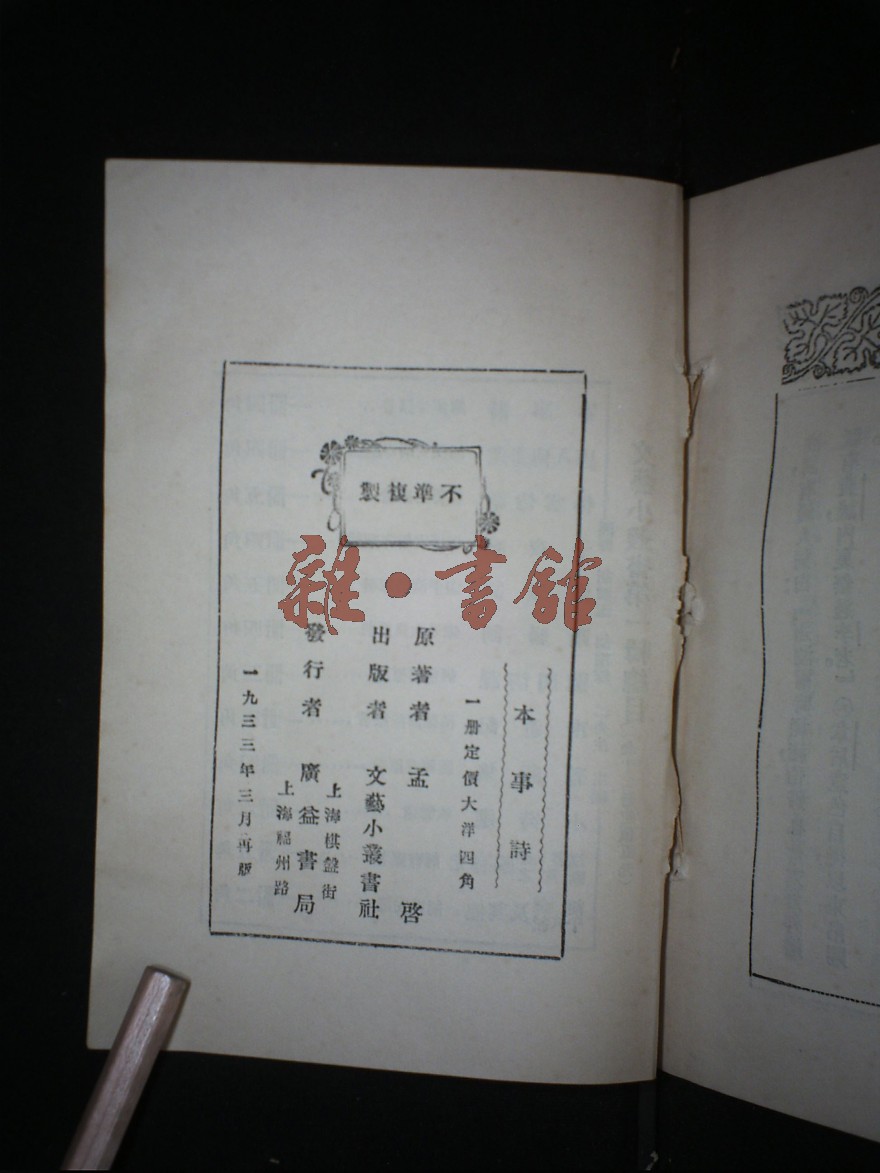 不準複製
雜·書館
本事詩
一册定價大洋四角
原著者 孟啓
出版者 文藝小叢書社
發行者 廣益書局
上海棋盤街
上海福州路
一九三三年三月再版